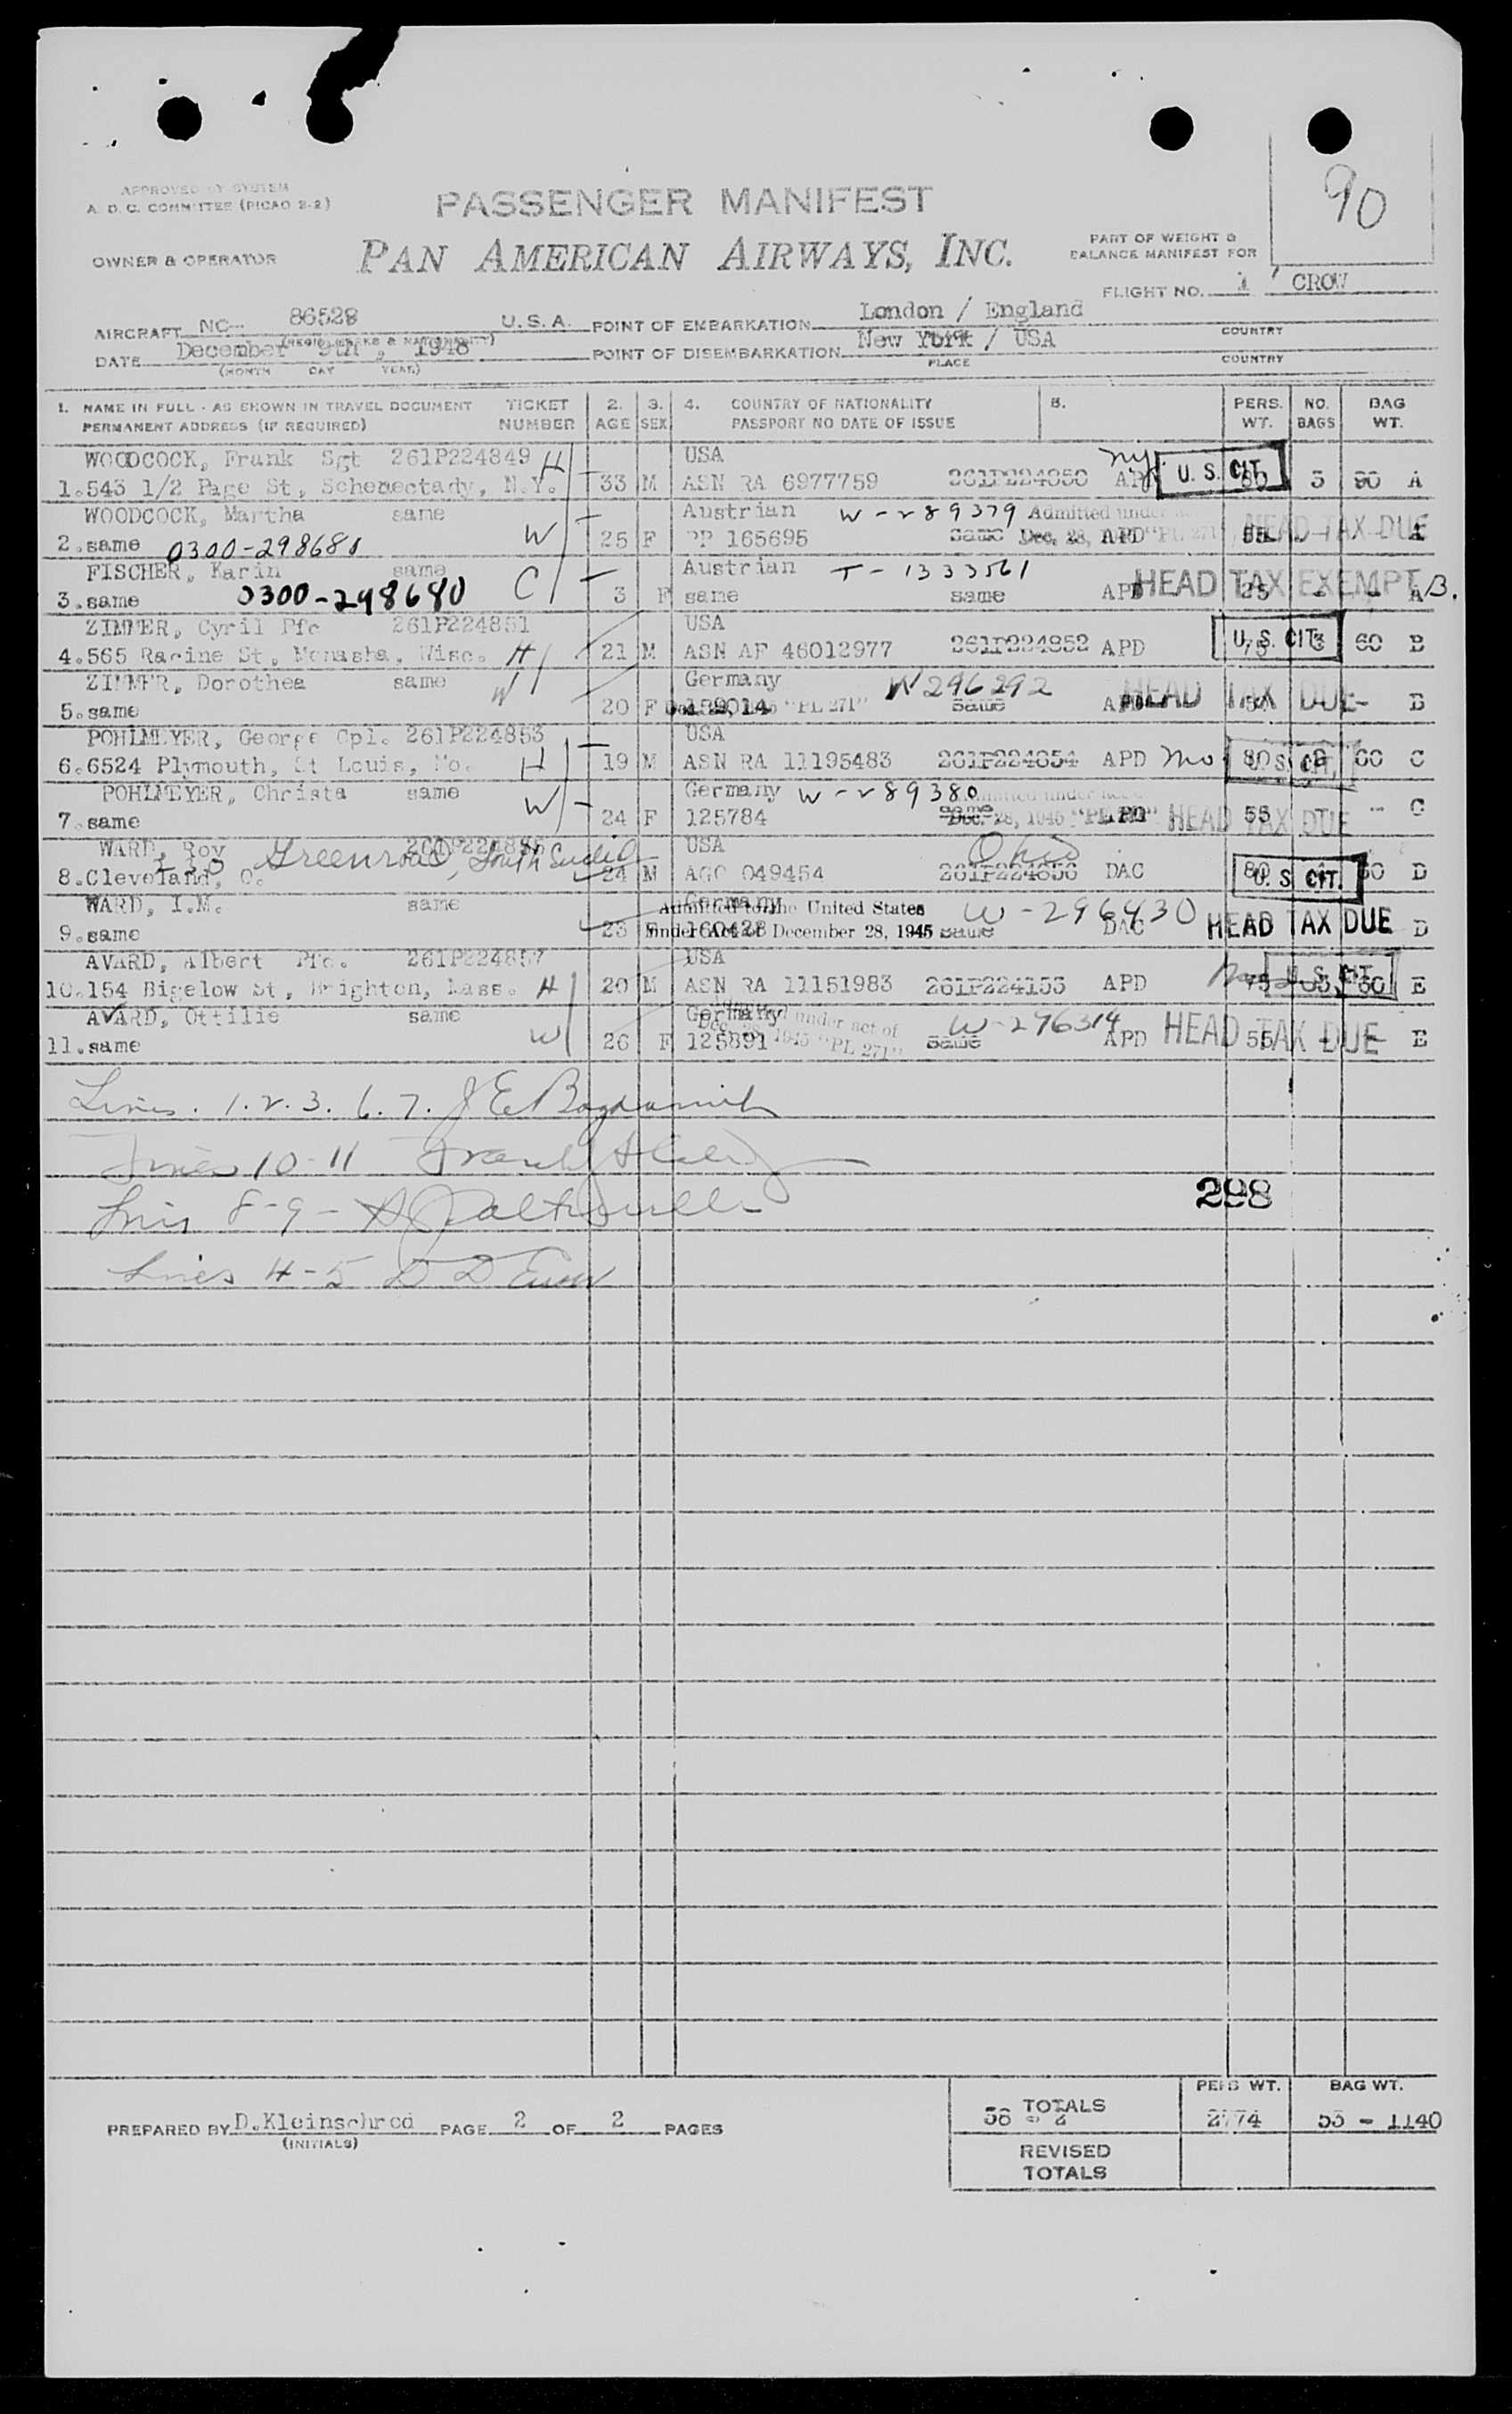 90
APPROVED BY SYSTEM
A. D. C. COMMITTEE (PICAO 2-2)
PASSENGER MANIFEST
OWNER & OPERATOR
PAN AMERICAN AIRWAYS, INC.
PART OF WEIGHT &
BALANCE MANIFEST FOR
FLIGHT NO. 1 / CROW
AIRCRAFT NC- 86528 U.S.A. POINT OF EMBARKATION London / England
COUNTRY
DATE December 9th, 1948 POINT OF DISEMBARKATION New York / USA
(MONTH DAY YEAR) PLACE COUNTRY
1. NAME IN FULL - AS SHOWN IN TRAVEL DOCUMENT TICKET 2. 3. 4. COUNTRY OF NATIONALITY 5. PERS. NO. BAG
PERMANENT ADDRESS (IF REQUIRED) NUMBER AGE SEX PASSPORT NO DATE OF ISSUE WT. BAGS WT.
WOODCOCK, Frank Sgt 261P224849 H USA NY
1.543 1/2 Page St, Schenectady, N.Y. 33 M ASN RA 6977759 261P224850 APD U. S. CIT. 80 3 90 A
WOODCOCK, Martha same W Austrian W-289379 Admitted under
2.same 0300-298681 25 F PP 165695 same Dec. 28, APD "PL 271" 55 HEAD TAX DUE A
FISCHER, Karin same C Austrian T-1333561
3.same 0300-298680 3 F same same APD HEAD TAX EXEMPT 25 - - A B.
ZIMMER, Cyril Pfc 261P224851 USA
4.565 Racine St, Menasha, Wisc. H 21 M ASN AF 46012977 261P224852 APD U. S. CIT. 75 3 60 B
ZIMMER, Dorothea same W Germany W296292
5.same 20 F "PL 271" same APD HEAD TAX DUE - B
POHLMEYER, George Cpl. 261P224853 USA
6.6524 Plymouth, St Louis, Mo. H 19 M ASN RA 11195483 261P224854 APD Mo 80 U. S. CIT. 60 C
POHLMEYER, Christa same W Germany W-289380
7.same 24 F 125784 same Dec. 28, 1945 HEAD TAX DUE 55 - C
WARD, Roy USA Ohio
230 Greenroad, South Euclid
8.Cleveland, O. 24 M AGO 049454 DAC 80 U. S. CIT. D
WARD, I.M. same Germany Admitted to the United States W-296430
9.same 23 160428 under Act of December 28, 1945 same DAC HEAD TAX DUE D
AVARD, Albert Pfc. 261P224857 USA
10.154 Bigelow St, Brighton, Mass. H 20 M ASN RA 11151983 261P224153 APD 75 U. S. CIT. E
AVARD, Ottilie same W Germany under act of W-296314
11.same 26 F 125891 1945 "PL 271" same APD HEAD TAX DUE 55 - E
Lines. 1.2.3. 6.7.
Lines 10-11
298
Lines 8-9 -
Lines 4-5
PERS WT. BAG WT.
PREPARED BY D.Kleinschrod PAGE 2 OF 2 PAGES TOTALS 2774 53 - 1140
(INITIALS)
REVISED
TOTALS